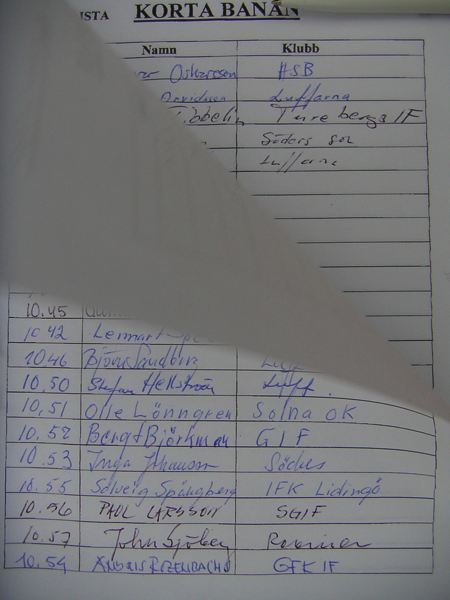 ISTA KORTA BANAN
Namn Klubb
Oskarsson HSB
Arvidsson Luffarna
Tibbelin Turebergs IF
Söders sol
Luffarna
10.45
10 42 Lennart
1046 Björn Sandberg
10.50 Stefan Hellström Luff.
10,51 Olle Lönngren Solna OK
10.52 Bengt Björkman GIF
10.53 Inga Johansson Söders
10.55 Solveig Spångberg IFK Lidingö
10.56 PAUL LARSSON SGIF
10.57 John Sjöberg
10.59 ANDRIS ROZENBACHS GFK IF